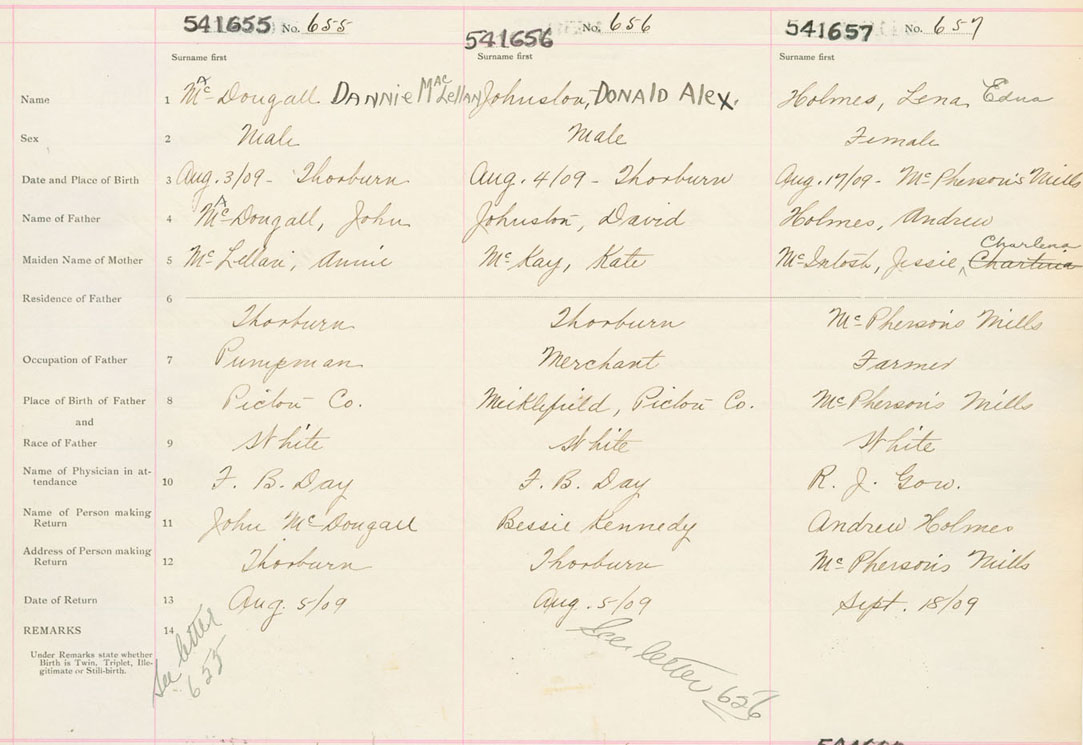 541655 No. 655 541656 No. 656 541657 No. 657
Surname first Surname first Surname first
Name 1 McA Dougall DANNIE MacLellan Johnston, DONALD Alex. Holmes, Lena Edna
Sex 2 Male Male Female
Date and Place of Birth 3 Aug. 3/09 - Thorburn Aug. 4/09 - Thorburn Aug. 17/09 - McPherson's Mills
Name of Father 4 McA Dougall, John Johnston, David Holmes, Andrew
Charlena
Maiden Name of Mother 5 McLellan, Annie McKay, Kate McIntosh, Jessie,
Residence of Father 6
Thorburn Thorburn McPherson's Mills
Occupation of Father 7 Pumpman Merchant Farmer
Place of Birth of Father 8 Pictou Co. Meiklefield, Pictou Co. McPherson's Mills
and
Race of Father 9 White White White
Name of Physician in at-
tendance 10 F. B. Day F. B. Day R. J. Gow.
Name of Person making
Return 11 John McDougall Bessie Kennedy Andrew Holmes
Address of Person making
Return 12 Thorburn Thorburn McPherson's Mills
Date of Return 13 Aug. 5/09 Aug. 5/09 Sept. 18/09
REMARKS 14
Under Remarks state whether
Birth is Twin, Triplet, Ille-
gitimate or Still-birth.
See letter
655
See letter 656